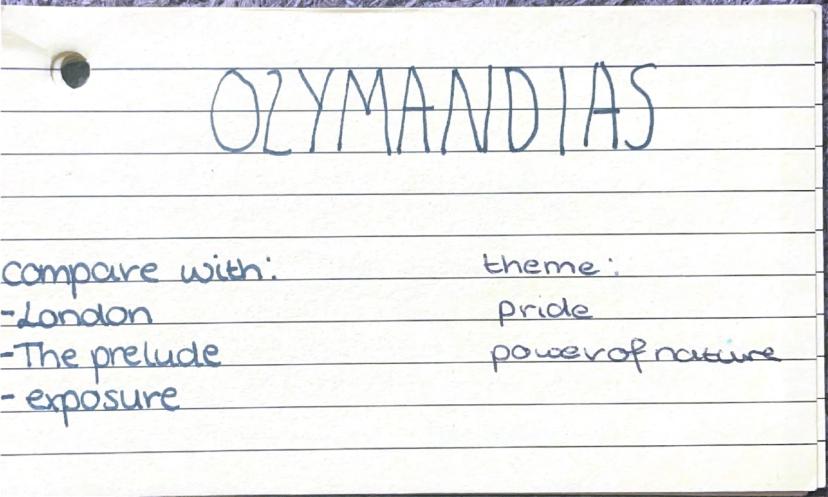 OZYMANDIAS
compare with:
-London
-The prelude
- exposure
theme:
pride
power of nature